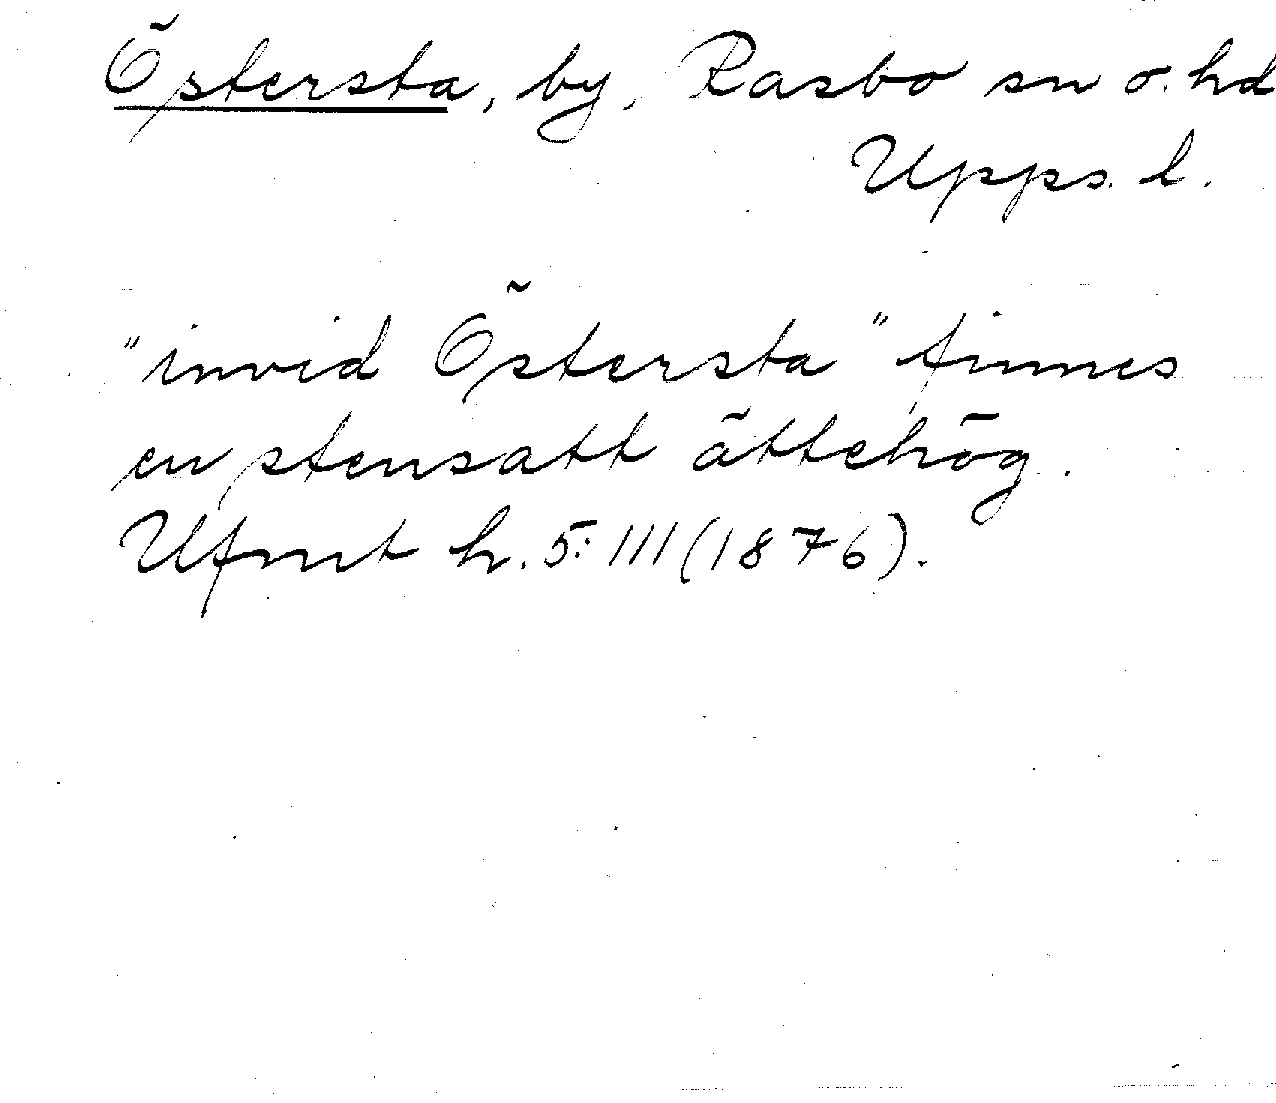 Östersta, by, Rasbo sn o. hd
Upps. l.
"invid Östersta" finnes
en stensatt ättehög.
Ufmt h. 5: 111 (1876).